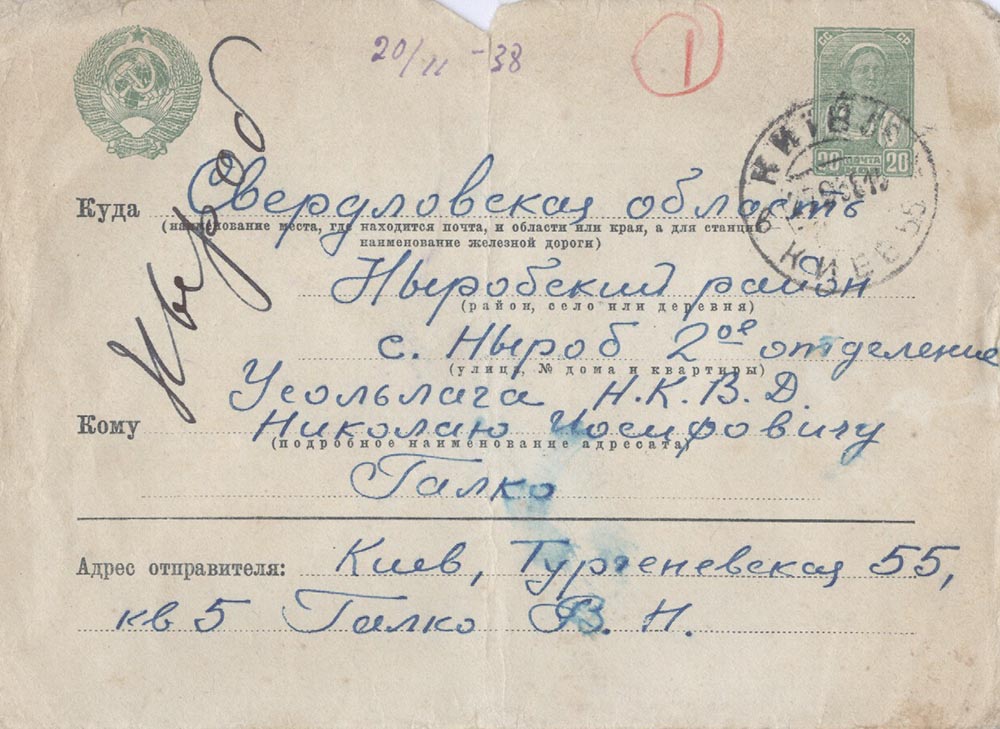 20/11 -38
1
СС СР
20 ПОЧТА 20
КИЇВ
КИЕВ
Ныроб
Куда Свердловская область
(наименование места, где находится почта, и области или края, а для станции
наименование железной дороги)
Ныробский район
(район, село или деревня)
с. Ныроб 2ое отделение
(улица, № дома и квартиры)
Усольлага Н.К.В.Д.
Кому Николаю Иосифовичу
(подробное наименование адресата)
Галко
Адрес отправителя: Киев, Тургеневская 55,
кв 5 Галко В. Н.